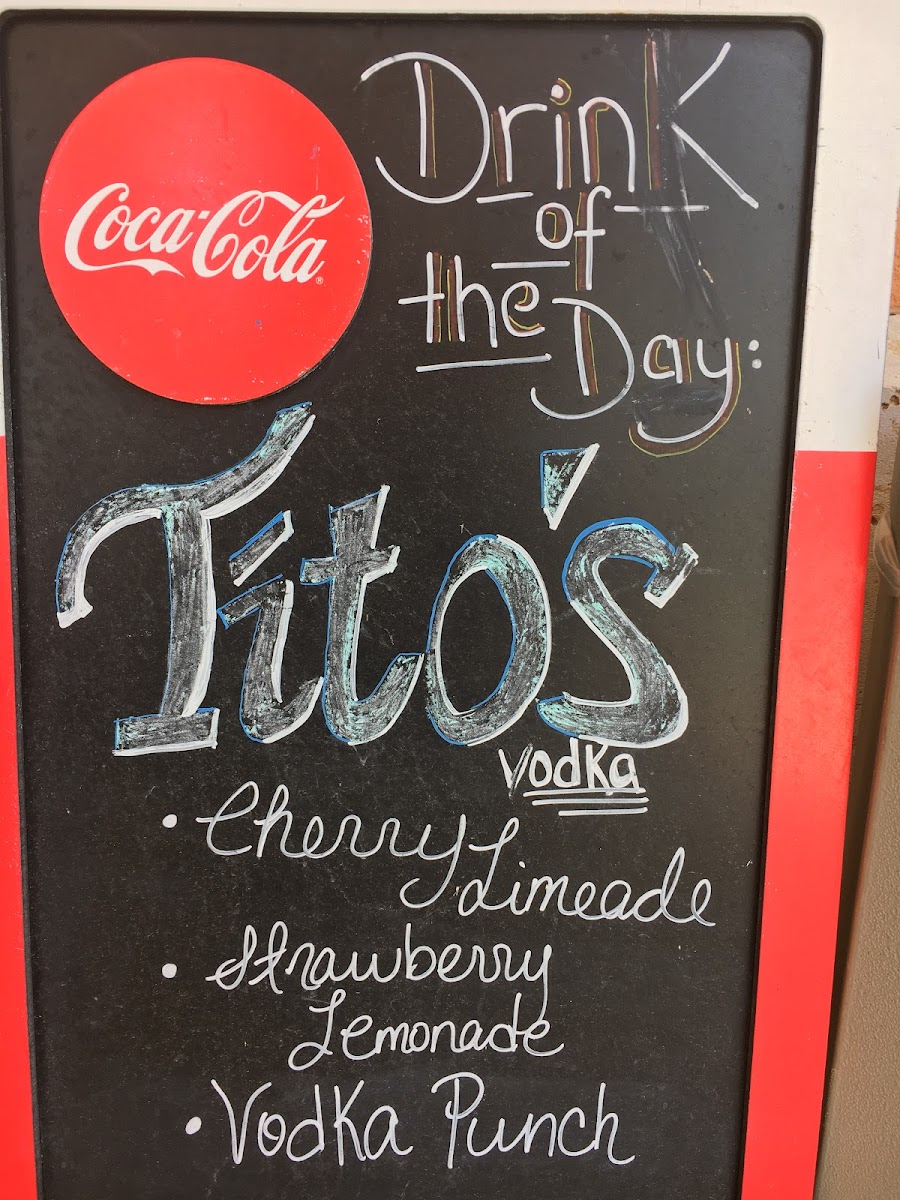 Coca-Cola
Drink
of
the
Day:
Tito's
Vodka
• Cherry
Limeade
• Strawberry
Lemonade
• Vodka Punch